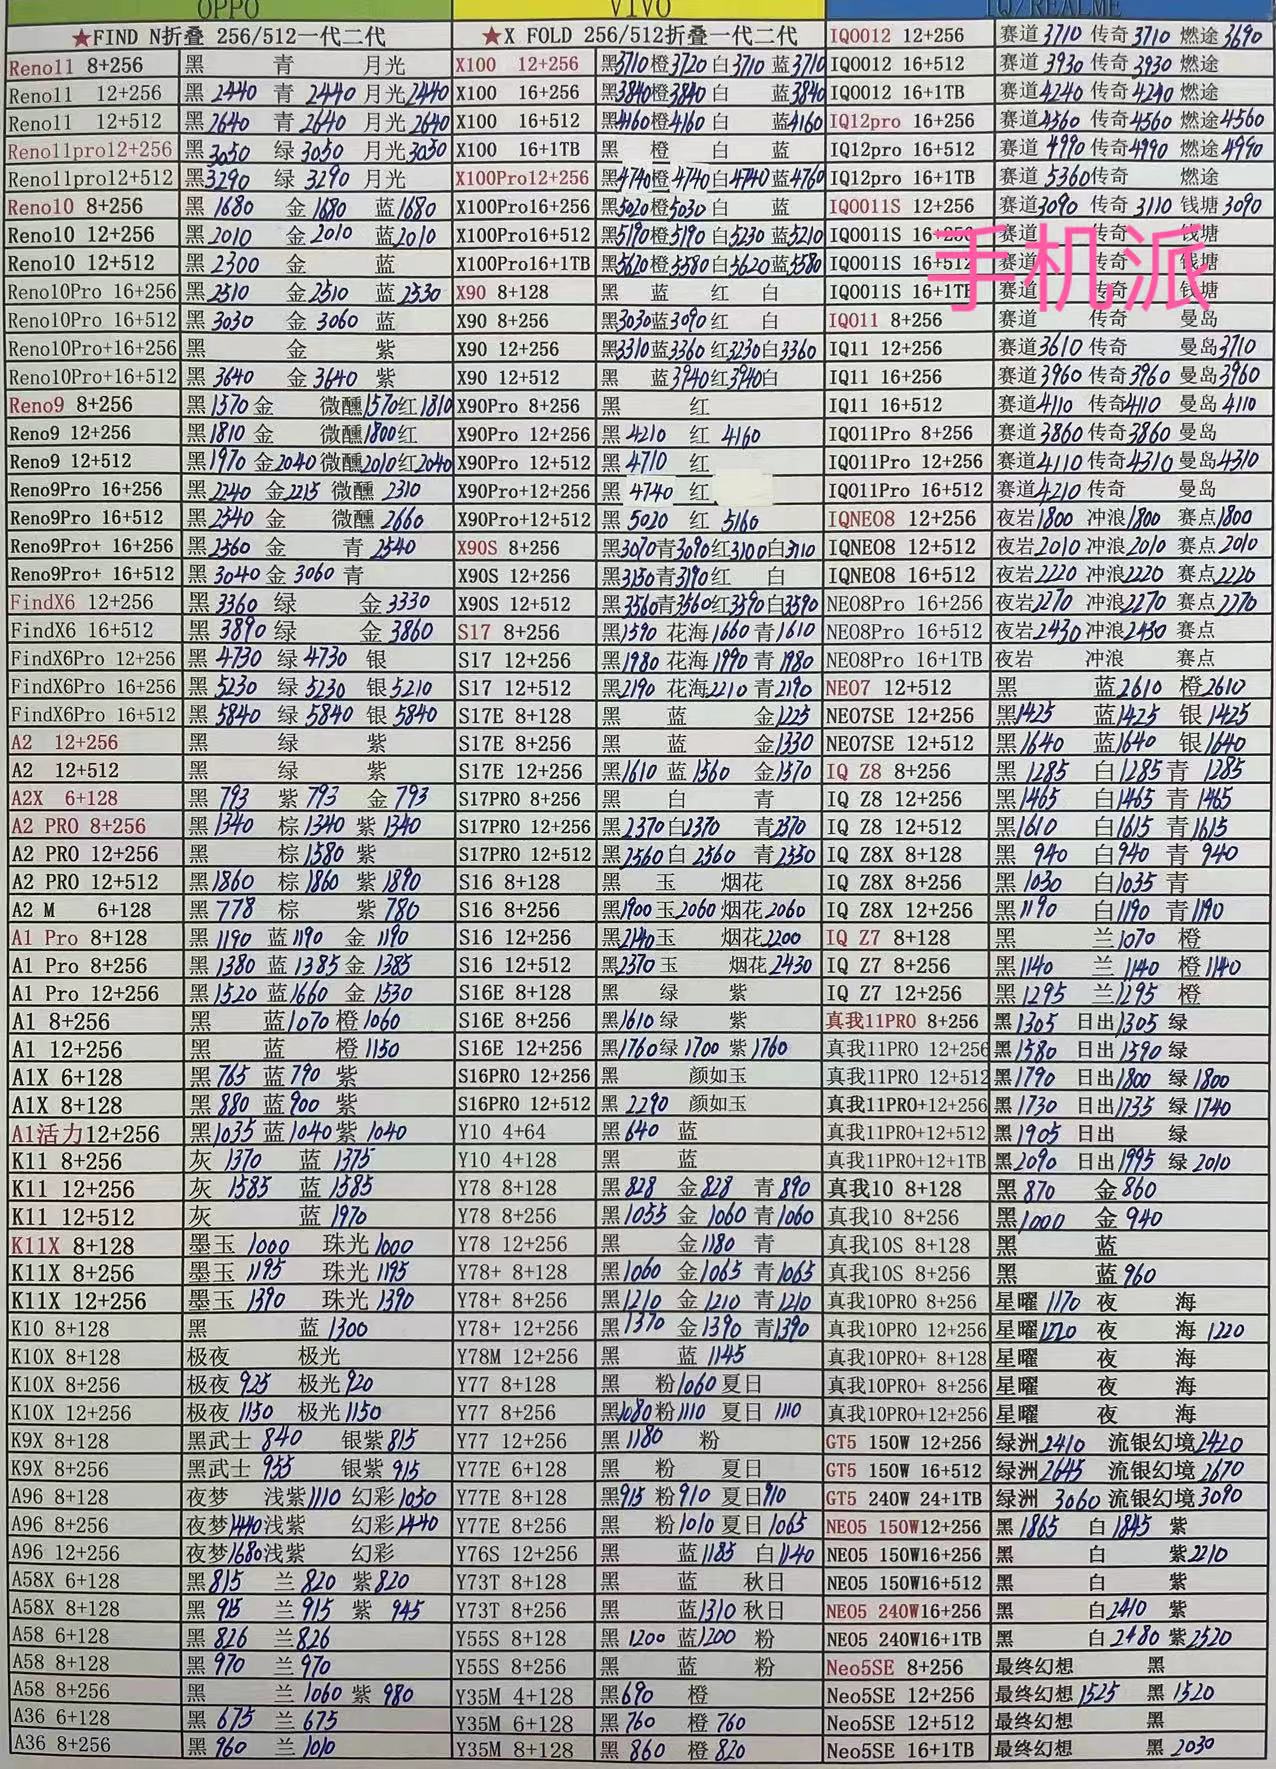 OPPO
★FIND N折叠 256/512一代二代
Reno11 8+256 黑 青 月光
Reno11 12+256 黑 2440 青 2440 月光2440
Reno11 12+512 黑 2640 青 2640 月光 2640
Reno11pro12+256 黑 3050 绿 3050 月光3050
Reno11pro12+512 黑3290 绿 3290 月光
Reno10 8+256 黑 1680 金 1680 蓝1680
Reno10 12+256 黑 2010 金 2010 蓝2010
Reno10 12+512 黑 2300 金 蓝
Reno10Pro 16+256 黑2510 金2510 蓝 2530
Reno10Pro 16+512 黑 3030 金 3060 蓝
Reno10Pro+16+256 黑 金 紫
Reno10Pro+16+512 黑 3640 金 3640 紫
Reno9 8+256 黑 1570 金 微醺1570红1810
Reno9 12+256 黑 1810 金 微醺1800红
Reno9 12+512 黑1970 金2040 微醺2010红2040
Reno9Pro 16+256 黑 2240 金2215 微醺 2310
Reno9Pro 16+512 黑 2540 金 微醺 2660
Reno9Pro+ 16+256 黑2560 金 青 2540
Reno9Pro+ 16+512 黑 3040 金 3060 青
FindX6 12+256 黑 3360 绿 金 3330
FindX6 16+512 黑 3890 绿 金 3860
FindX6Pro 12+256 黑 4730 绿 4730 银
FindX6Pro 16+256 黑 5230 绿 5230 银 5210
FindX6Pro 16+512 黑 5840 绿 5840 银 5840
A2 12+256 黑 绿 紫
A2 12+512 黑 绿 紫
A2X 6+128 黑 793 紫 793 金 793
A2 PRO 8+256 黑 1340 棕 1340 紫 1340
A2 PRO 12+256 黑 棕 1580 紫
A2 PRO 12+512 黑1860 棕 1860 紫 1890
A2 M 6+128 黑 778 棕 紫 780
A1 Pro 8+128 黑 1190 蓝1190 金 1190
A1 Pro 8+256 黑 1380 蓝 1385 金 1385
A1 Pro 12+256 黑 1520 蓝1660 金 1530
A1 8+256 黑 蓝1070 橙 1060
A1 12+256 黑 蓝 橙 1150
A1X 6+128 黑 765 蓝 790 紫
A1X 8+128 黑 880 蓝 900 紫
A1活力12+256 黑1035 蓝 1040 紫 1040
K11 8+256 灰 1370 蓝 1375
K11 12+256 灰 1585 蓝 1585
K11 12+512 灰 蓝 1970
K11X 8+128 墨玉 1000 珠光 1000
K11X 8+256 墨玉 1195 珠光 1195
K11X 12+256 墨玉 1390 珠光 1390
K10 8+128 黑 蓝 1300
K10X 8+128 极夜 极光
K10X 8+256 极夜 925 极光 920
K10X 12+256 极夜 1150 极光1150
K9X 8+128 黑武士 840 银紫 815
K9X 8+256 黑武士 955 银紫 915
A96 8+128 夜梦 浅紫1110 幻彩1050
A96 8+256 夜梦1440浅紫 幻彩1440
A96 12+256 夜梦1680浅紫 幻彩
A58X 6+128 黑815 兰 820 紫820
A58X 8+128 黑 915 兰915 紫 945
A58 6+128 黑 826 兰826
A58 8+128 黑 970 兰 970
A58 8+256 黑 兰 1060 紫 980
A36 6+128 黑 675 兰 675
A36 8+256 黑 960 兰 1010
VIVO
★X FOLD 256/512折叠一代二代
X100 12+256 黑3710橙3720 白3710 蓝3710
X100 16+256 黑3840橙3840 白 蓝3840
X100 16+512 黑4160橙4160 白 蓝4160
X100 16+1TB 黑 橙 白 蓝
X100Pro12+256 黑4740橙4740白4740蓝4760
X100Pro16+256 黑5020橙5030 白 蓝
X100Pro16+512 黑5190橙5190 白5230 蓝5210
X100Pro16+1TB 黑5620橙5580白5620蓝5580
X90 8+128 黑 蓝 红 白
X90 8+256 黑3030蓝3090 红 白
X90 12+256 黑3310蓝3360 红3230白3360
X90 12+512 黑 蓝3940红3940白
X90Pro 8+256 黑 红
X90Pro 12+256 黑 4210 红 4160
X90Pro 12+512 黑 4710 红
X90Pro+12+256 黑 4740 红
X90Pro+12+512 黑 5020 红 5160
X90S 8+256 黑3070青3090红3100白3110
X90S 12+256 黑3150青3190红 白
X90S 12+512 黑3560青3560红3590白3590
S17 8+256 黑1590 花海1660 青1610
S17 12+256 黑1980 花海1990 青1980
S17 12+512 黑2190 花海2210 青2190
S17E 8+128 黑 蓝 金1225
S17E 8+256 黑 蓝 金1330
S17E 12+256 黑1610 蓝 1560 金1570
S17PRO 8+256 黑 白 青
S17PRO 12+256 黑2370白2370 青2370
S17PRO 12+512 黑2560白 2560 青2550
S16 8+128 黑 玉 烟花
S16 8+256 黑1900 玉2060 烟花2060
S16 12+256 黑2140玉 烟花2200
S16 12+512 黑2370 玉 烟花2430
S16E 8+128 黑 绿 紫
S16E 8+256 黑1610 绿 紫
S16E 12+256 黑1760绿 1700 紫 1760
S16PRO 12+256 黑 颜如玉
S16PRO 12+512 黑 2290 颜如玉
Y10 4+64 黑 640 蓝
Y10 4+128 黑 蓝
Y78 8+128 黑 828 金828 青 890
Y78 8+256 黑 1055 金 1060 青1060
Y78 12+256 黑 金1180 青
Y78+ 8+128 黑1060 金1065 青1065
Y78+ 8+256 黑1210 金 1210 青1210
Y78+ 12+256 黑 1370 金 1390 青1390
Y78M 12+256 黑 蓝 1145
Y77 8+128 黑 粉1060 夏日
Y77 8+256 黑1080粉1110 夏日 1110
Y77 12+256 黑 1180 粉
Y77E 6+128 黑 粉 夏日
Y77E 8+128 黑915 粉910 夏日910
Y77E 8+256 黑 粉1010 夏日1065
Y76S 12+256 黑 蓝1185 白1140
Y73T 8+128 黑 蓝 秋日
Y73T 8+256 黑 蓝1310 秋日
Y55S 8+128 黑 1200 蓝1200 粉
Y55S 8+256 黑 蓝 粉
Y35M 4+128 黑690 橙
Y35M 6+128 黑760 橙 760
Y35M 8+128 黑 860 橙 820
IQ/REALME
IQOO12 12+256 赛道 3710 传奇 3710 燃途 3690
IQOO12 16+512 赛道 3930 传奇 3930 燃途
IQOO12 16+1TB 赛道4240 传奇 4240 燃途
IQ12pro 16+256 赛道4560 传奇 4560 燃途4560
IQ12pro 16+512 赛道 4990 传奇4990 燃途4990
IQ12pro 16+1TB 赛道 5360传奇 燃途
IQOO11S 12+256 赛道3090 传奇 3110 钱塘 3090
IQOO11S 16+256 赛道 传奇 钱塘
IQOO11S 16+512 赛道 传奇 钱塘
IQOO11S 16+1TB 赛道 传奇 钱塘
手机派
IQO11 8+256 赛道 传奇 曼岛
IQ11 12+256 赛道3610 传奇 曼岛3710
IQ11 16+256 赛道 3960 传奇3960 曼岛3960
IQ11 16+512 赛道4110 传奇4110 曼岛 4110
IQO11Pro 8+256 赛道3860传奇3860 曼岛
IQO11Pro 12+256 赛道4110 传奇4310 曼岛4310
IQO11Pro 16+512 赛道4210 传奇 曼岛
IQNEO8 12+256 夜岩1800 冲浪1800 赛点1800
IQNEO8 12+512 夜岩2010 冲浪2010 赛点 2010
IQNEO8 16+512 夜岩2220 冲浪2220 赛点2220
NEO8Pro 16+256 夜岩2270 冲浪2270 赛点 2270
NEO8Pro 16+512 夜岩2430 冲浪2430 赛点
NEO8Pro 16+1TB 夜岩 冲浪 赛点
NEO7 12+512 黑 蓝2610 橙2610
NEO7SE 12+256 黑1425 蓝1425 银 1425
NEO7SE 12+512 黑1640 蓝1640 银 1640
IQ Z8 8+256 黑 1285 白1285 青 1285
IQ Z8 12+256 黑1465 白1465 青 1465
IQ Z8 12+512 黑1610 白1615 青1615
IQ Z8X 8+128 黑 940 白940 青 940
IQ Z8X 8+256 黑 1030 白1035 青
IQ Z8X 12+256 黑1190 白1190 青1190
IQ Z7 8+128 黑 兰1070 橙
IQ Z7 8+256 黑1140 兰 1140 橙 1140
IQ Z7 12+256 黑 1295 兰1295 橙
真我11PRO 8+256 黑 1305 日出1305 绿
真我11PRO 12+256 黑1580 日出 1590 绿
真我11PRO 12+512 黑1790 日出1800 绿 1800
真我11PRO+12+256 黑 1730 日出1735 绿 1740
真我11PRO+12+512 黑1905 日出 绿
真我11PRO+12+1TB 黑2090 日出1995 绿 2010
真我10 8+128 黑 870 金 860
真我10 8+256 黑1000 金 940
真我10S 8+128 黑 蓝
真我10S 8+256 黑 蓝 960
真我10PRO 8+256 星曜 1170 夜 海
真我10PRO 12+256 星曜1220 夜 海 1220
真我10PRO+ 8+128 星曜 夜 海
真我10PRO+ 8+256 星曜 夜 海
真我10PRO+12+256 星曜 夜 海
GT5 150W 12+256 绿洲2410 流银幻境2420
GT5 150W 16+512 绿洲2645 流银幻境2670
GT5 240W 24+1TB 绿洲 3060 流银幻境3090
NEO5 150W12+256 黑 1865 白 1845 紫
NEO5 150W16+256 黑 白 紫2210
NEO5 150W16+512 黑 白 紫
NEO5 240W16+256 黑 白2410 紫
NEO5 240W16+1TB 黑 白 2480 紫2520
Neo5SE 8+256 最终幻想 黑
Neo5SE 12+256 最终幻想 1525 黑 1520
Neo5SE 12+512 最终幻想 黑
Neo5SE 16+1TB 最终幻想 黑 2030